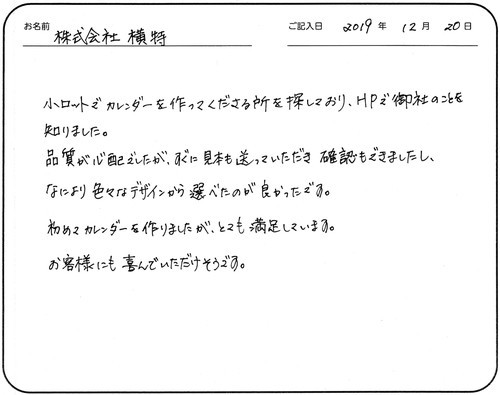 お名前 株式会社 横特 ご記入日 2019 年 12 月 20 日
小ロットでカレンダーを作ってくださる所を探しており、HPで御社のことを
知りました。
品質が心配でしたが、すぐに見本も送っていただき 確認もできましたし、
なにより色々なデザインから選べたのが良かったです。
初めてカレンダーを作りましたが、とても満足しています。
お客様にも喜んでいただけそうです。